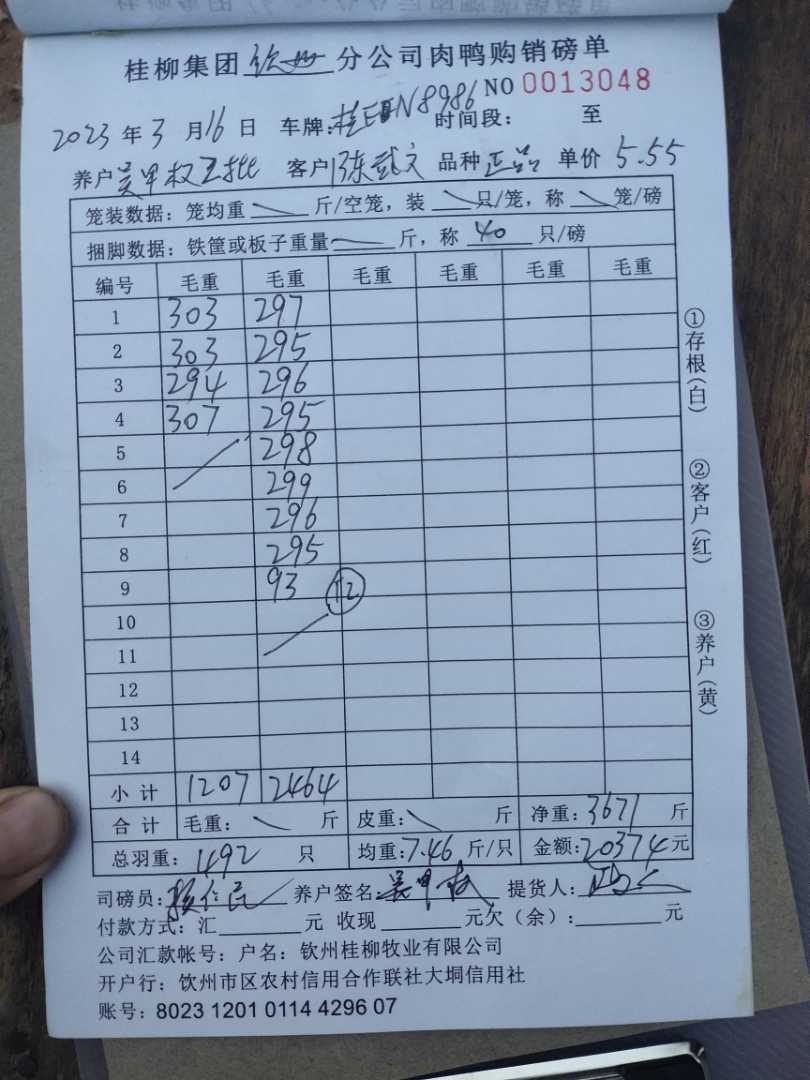 桂柳集团钦州分公司肉鸭购销磅单
NO 0013048
2023年3月16日 车牌:桂E N8986 时间段: 至
养户吴甲权 客户陈武文 品种正品 单价5.55
笼装数据:笼均重 斤/空笼,装 只/笼,称 笼/磅
捆脚数据:铁筐或板子重量 斤,称 40 只/磅
编号 毛重 毛重 毛重 毛重 毛重 毛重
1 303 297
2 303 295
3 294 296
4 307 295
5 298
6 299
7 296
8 295
9 93 12
10
11
12
13
14
小计 1207 2464
合计 毛重: 斤 皮重: 斤 净重:3671 斤
总羽重:1492 只 均重:7.46 斤/只 金额:20374元
司磅员: 养户签名:吴甲权 提货人:
付款方式:汇 元 收现 元欠(余): 元
公司汇款帐号:户名:钦州桂柳牧业有限公司
开户行:饮州市区农村信用合作联社大垌信用社
账号:8023 1201 0114 4296 07
①存根(白)
②客户(红)
③养户(黄)